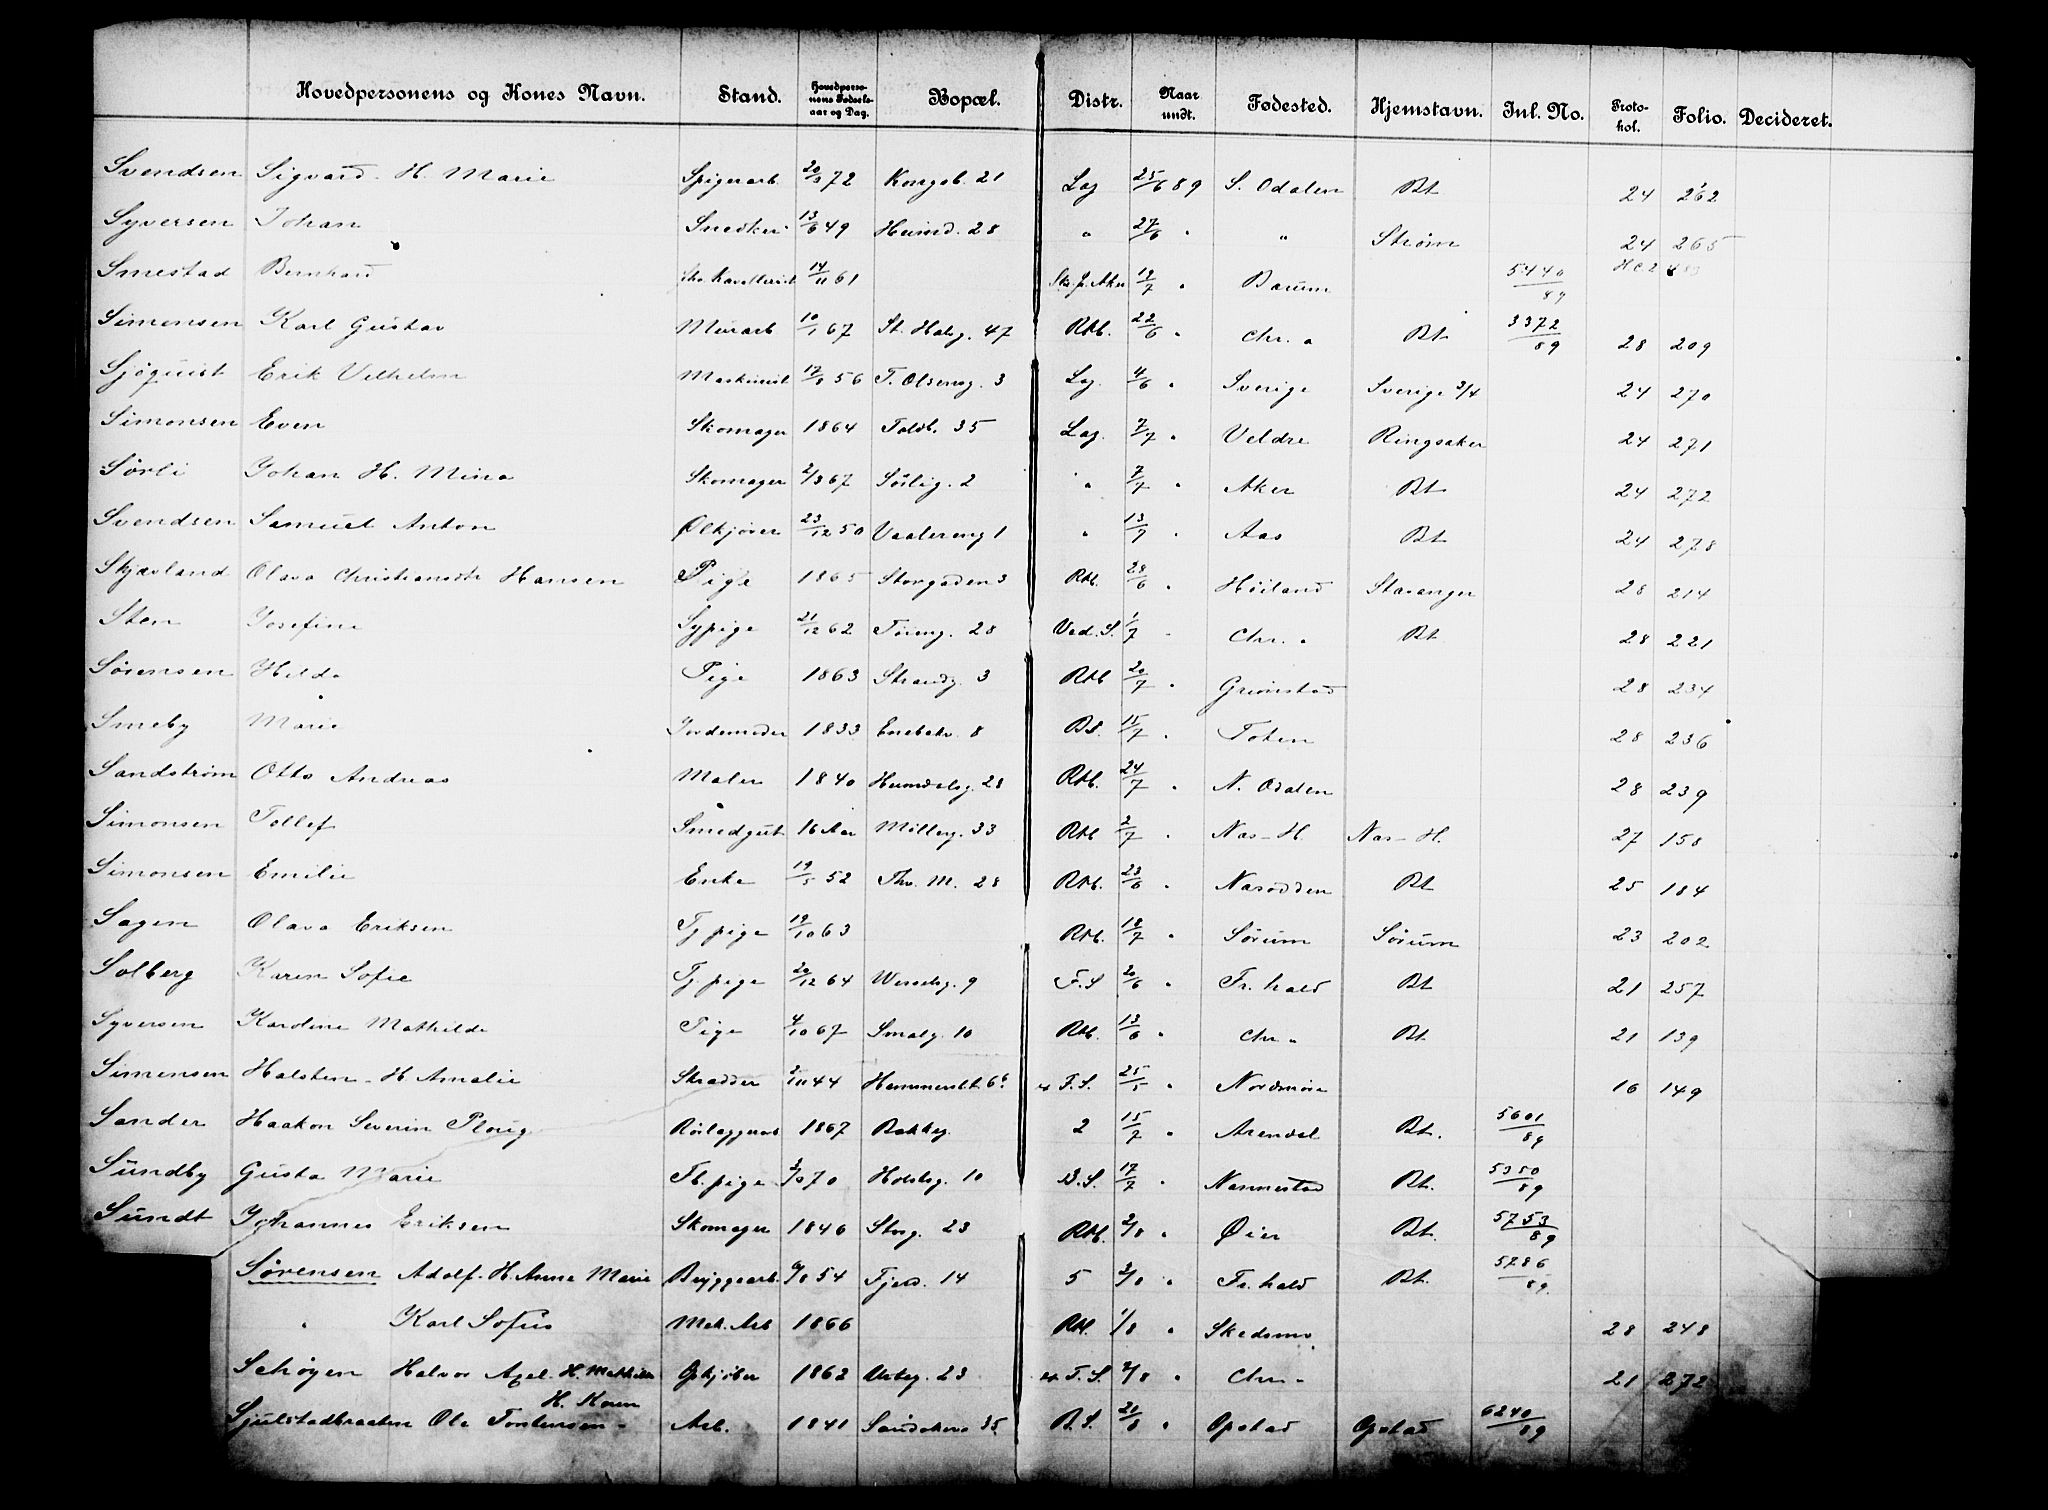 Hovedpersonens og Kones Navn. Stand. Hovedperso-nens Fødsels-aar og Dag. Bopæl. Distr. Naar undt. Fødested. Hjemstavn. Inl. No. Proto-kol. Folio. Decideret.
Svendsen Sigvard. H. Marie Spigerarb. 20/3 72 Kongsb. 21 Lag 25/6 89 S. Odalen Bt 24 262
Syversen Johan Snedker 13/6 49 Heimd. 28 " 27/6 " " Strøm 24 265
Smestad Bernhard 14/11 61 19/7 " Bærum 5440/89
Simensen Karl Gustav Murarb 10/1 67 St. Halvg. 47 Rkb. 22/6 " Chr. a Bt 3372/89 28 209
Sjöquist Erik Vilhelm Maskinist 56 T. Olsensg. 3 Lag. 4/6 " Sverige Sverige 3/4 24 270
Simonsen Even Skomager 1864 Toldb. 35 Lag. 7/7 " Veldre Ringsaker 24 271
Sørli Johan H. Mina Skomager 2/3 67 Sörlig. 2 " 7/7 " Aker Bt 24 272
Svendsen Samuel Anton Ølkjører 23/12 50 Vaalereng 1 " 13/7 " Aas Bt 24 278
Skjævland Olava Christiansdtr Hansen Pige 1865 Storgaden 3 Rkb. 28/6 " Høiland Stavanger 28 214
Sten Josefine Sypige 21/12 62 Töieng. 28 Vad. S. 1/7 " Chr. a Bt 28 221
Sörensen Hilda Pige 1863 Strandg. 3 Rkb 20/7 " Grimstad 28 234
Smeby Marie Jordemoder 1833 Enebakv. 8 B.S. 15/7 " Toten 28 236
Sandström Otto Andreas Maler 1840 Heimdalsg. 28 Rkb. 24/7 " N. Odalen 28 239
Simonsen Tollef Smedgut 16 Aar Möllerg. 33 Rkb 2/7 " Næs-H. Næs-H. 27 158
Simonsen Emilie Enke 19/5 52 Thv. M. 28 Rkb. 28/6 " Næsodden Bt 25 184
Sagen Olava Eriksen Tj. pige 19/10 63 Rkb. 18/7 " Sørum Sørum 23 202
Solberg Karen Sofie Tj. pige 20/12 64 Wesselsg. 9 F.S 20/6 " Fr. hald Bt 21 257
Syversen Karoline Mathilde Pige 4/10 67 Smalg. 10 Rkb. 13/6 " Chr. a Bt 21 139
Simensen Halsten. H Amalie Skrædder 2/11 44 Hammersb. 6b F.S. 25/5 " Nordmöre 16 149
Sander Haakon Severin Ploug Rörlæggerarb 1867 Bakkeg. 2 15/7 " Arendal Bt. 5601/89
Sundby Gusta Marie Fb. pige 70 Holsteg. 10 B.S. 17/7 " Nannestad Bt. 5350/89
Sundt Johannes Eriksen Skomager 1846 Storg. 23 Rkb. 2/8 " Øier Bt. 5753/89
Sørensen Adolf. H. Anna Marie Bryggearb. 54 Fjeld. 14 5 2/8 " Fr. hald Bt. 5786/89
" Karl Sofus Mek. Arb 1866 Rkb. 1/8 " Skedsmo 28 248
Schøyen Halvor Axel. H. Mathilde 1862 Urteg. 23 F.S. 2/8 " Chr. a 21 272
Sjulstadbraaten Ole Torstensen - H. Karen Arb. 1841 Sandakerv 35 B.S. 21/8 " Opstad Opstad 6240/89